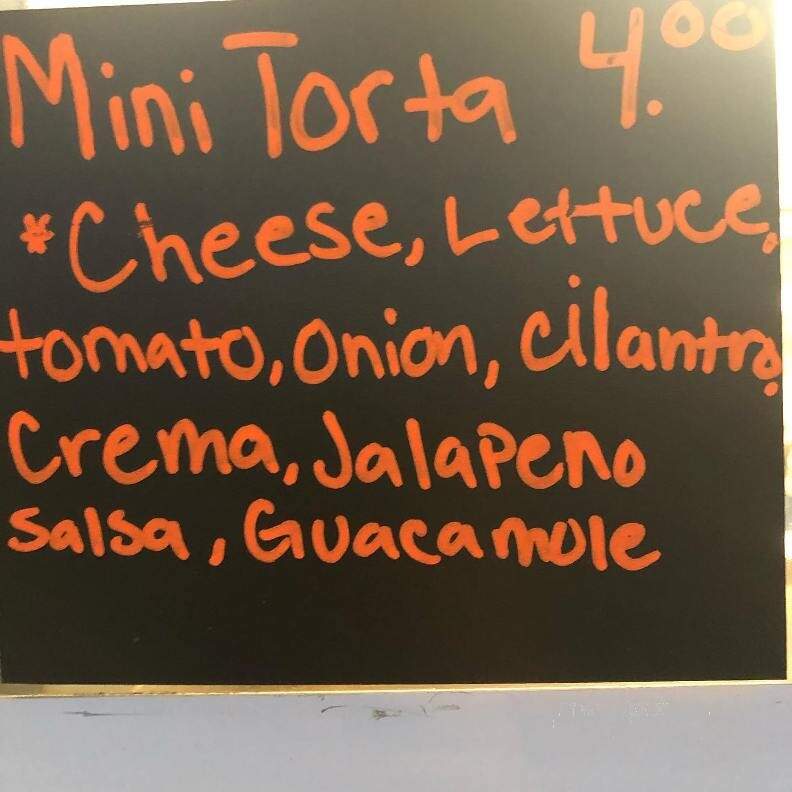 Mini Torta 4.00
*Cheese, Lettuce,
tomato, Onion, cilantro,
Crema, Jalapeno
Salsa, Guacamole